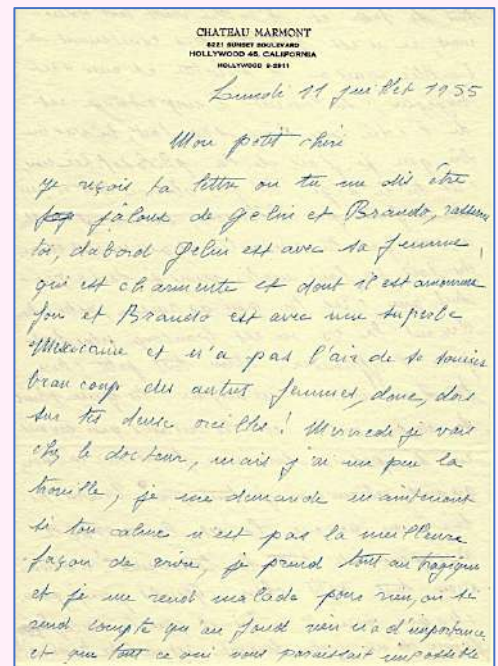 CHATEAU MARMONT
8221 SUNSET BOULEVARD
HOLLYWOOD 46, CALIFORNIA
HOLLYWOOD 9-2911
Lundi 11 juillet 1955
Mon petit chéri
Je reçois ta lettre ou tu me dis être
jaloux de Gelin et Brando, rassure
toi, dabord Gelin est avec sa femme,
qui est charmente et dont il est amoureux
fou et Brando est avec une superbe
Mexicaine et n'a pas l'air de se soucier
beaucoup des autres femmes, donc, dors
sur tes deux oreilles! Mercredi je vais
chez le docteur, mais j'ai un peu la
trouille, je me demande maintenant
si ton calme n'est pas la meilleure
façon de vivre, je prend tout au tragique
et je me rend malade pour rien, on se
rend compte qu'au fond rien n'a d'importance
et que tout ce qui vous paraissait impossible